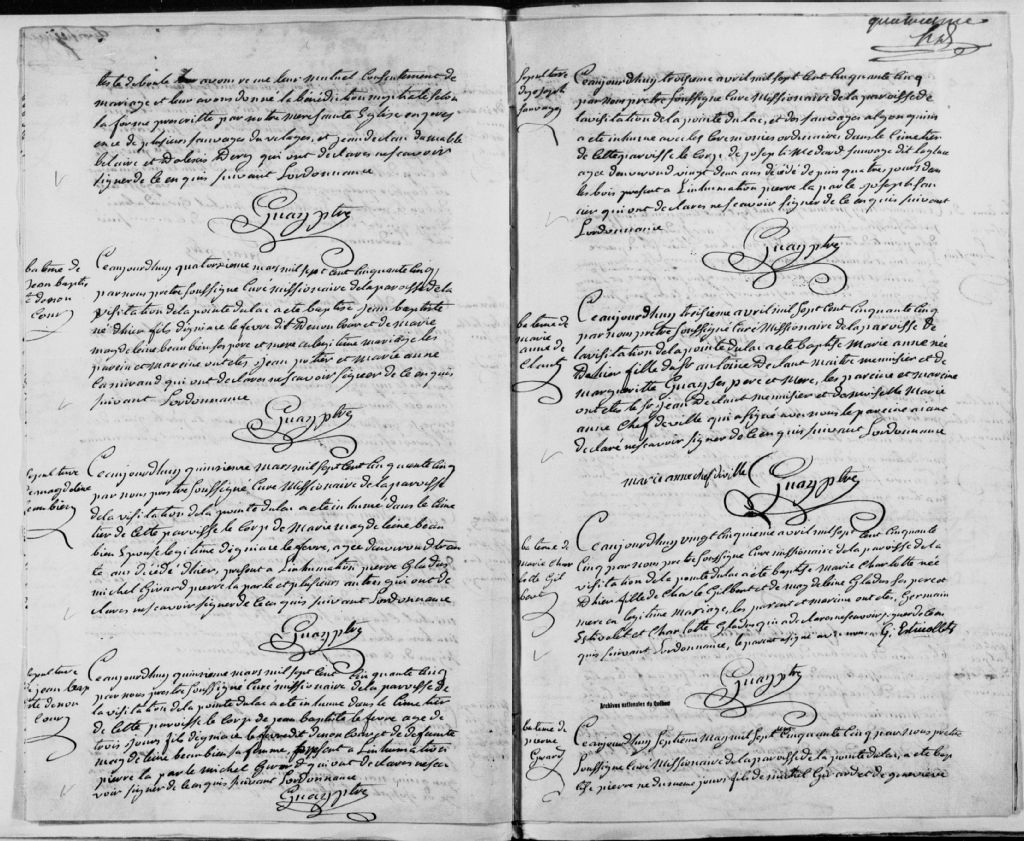 avons reçu leur mutuel Consentement de
mariage et leur avons donné la bénédiction nuptiale selon
la forme prescritte par notre mere sainte Eglise en pres
ence de plusieurs sauvages du vilages, et jean
et D'alexis Dery qui ont declares ne scavoir
signer de ce enquis suivant Lordonnance
Guay ptre
batême de
Jean baptis
te denon
Cour
Ce aujourdhuy quatorzieme mars mil sept Cent Cinquante Cinq
par nous pretre soussigné Curé Missionaire de la paroisse de la
visitation de la pointe du lac a ete baptise jean baptiste
né D'hier fils d'igniace le fevre dit Denon Cour et de Marie
magdeleine beaubien ses pere et mere en legitime mariage les
parein et maraine ont etes jean potier et Marie anne
qui ont declares ne scavoir signer de ce enquis
suivant Lordonnance
Guay ptre
sepulture
de magdeleine
beaubien
Ce aujourdhuy quinzieme mars mil sept Cent Cinquante Cinq
par nous pretre soussigné Curé Missionaire de la paroisse
de la visitation de la pointe du lac a ete inhumé dans le Cime
tier de Cette paroisse le Corps de Marie magdeleine beau
bien Epouse legitime d'igniace le fevre, agee d'environd tran
te ans décédé D'hier, present a L'inhumation pierre Gladus
michel Girard pierre la parle et plusieurs autres qui ont de
clares ne scavoir signer de ce enquis suivant Lordonnance
Guay ptre
sepulture
de jean bap
te denon
Cour
Ce aujourdhuy quinzieme mars mil sept Cent Cinquante Cinq
par nous pretre soussigné Curé Missionaire de la paroisse de
la visitation de la pointe du lac a ete inhumé dans le Cimetier
de Cette paroisse le Corps de jean baptiste le fevre age de
trois jours fils d'igniace le fevre dit denon Cour et de defeunte
magdeleine beaubien sa femme, present a L'inhumation
pierre la parle michel Girard qui ont declares ne sca
voir signer de ce enquis suivant Lordonnance
Guay ptre
quatorzieme
sepulture
de joseph
sauvage
Ce aujourdhuy troisieme avril mil sept Cent Cinquante Cinq
par nous prêtre soussigné Curé Missionaire de la paroisse de
la visitation de la pointe du lac, et des sauvages algonquins
a ete inhumé avec les Ceremonies ordinaires dans le Cimetier
de Cette paroisse le Corps de joseph Medard sauvage dit
agee d'environd vingt deux ans décédé depuis quatre jours dans
les bois present a L'inhumation pierre la parle joseph
qui ont declares ne scavoir signer de ce enquis suivant
Lordonnance
Guay ptre
batême de
marie
anne de
Claut
Ce aujourdhuy troisieme avril mil sept Cent Cinquante Cinq
par nous pretre soussigné Curé Missionaire de la paroisse de
la visitation de la pointe du lac a ete baptisé Marie anne née
D'hier fille du Sr antoine De Claut maitre mennisier et de
margueritte Guay ses pere et mere, les pareine et marcine
ont etes le Sr jean De Claut mennisier et damoiselle Marie
anne Chef deville qui a signé avec nous le pareine aiant
declaré ne scavoir signer de ce enquis suivant Lordonnance
marie anne chef deville Guay ptre
batême de
marie Char
lotte Gil
bert
Ce aujourdhuy vingt Cinquieme avril mil sept Cent Cinquante
Cinq par nous pretre soussigné Curé missionaire de la paroisse de la
visitation de la pointe du lac a ete baptisé marie Charlotte née
D'hier fille de Charle Gilbert et de magdeleine Gladus ses pere et
mere en legitime mariage, les parein et marine ont etes, Germain
et Charlotte Gladus qui a declare ne scavoir signer de ce en
quis suivant Lordonnance, le parein a signé avec nous
Guay ptre
Archives nationales du Québec
batême de
pierre
Girard
Ce aujourdhuy septieme may mil sept Cent Cinquante Cinq par nous pretre
soussigné Curé Missionaire de la paroisse de la pointe du lac, a ete bap
tisé pierre né du meme jour fils de michel Girard et de genevieve